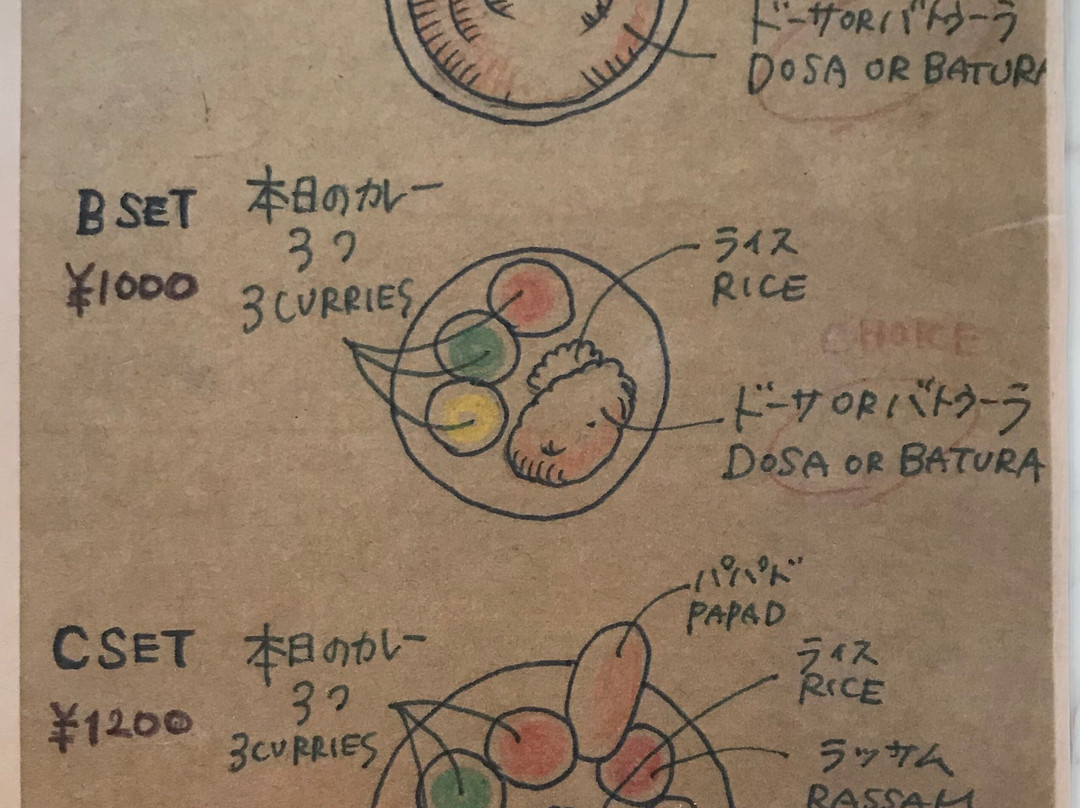 ドーサORバトゥーラ
DOSA OR BATURA
B SET
¥1000
本日のカレー
3つ
3 CURRIES
ライス
RICE
CHOICE
ドーサ OR バトゥーラ
DOSA OR BATURA
C SET
¥1200
本日のカレー
3つ
3 CURRIES
パパド
PAPAD
ライス
RICE
ラッサム
RASSAM